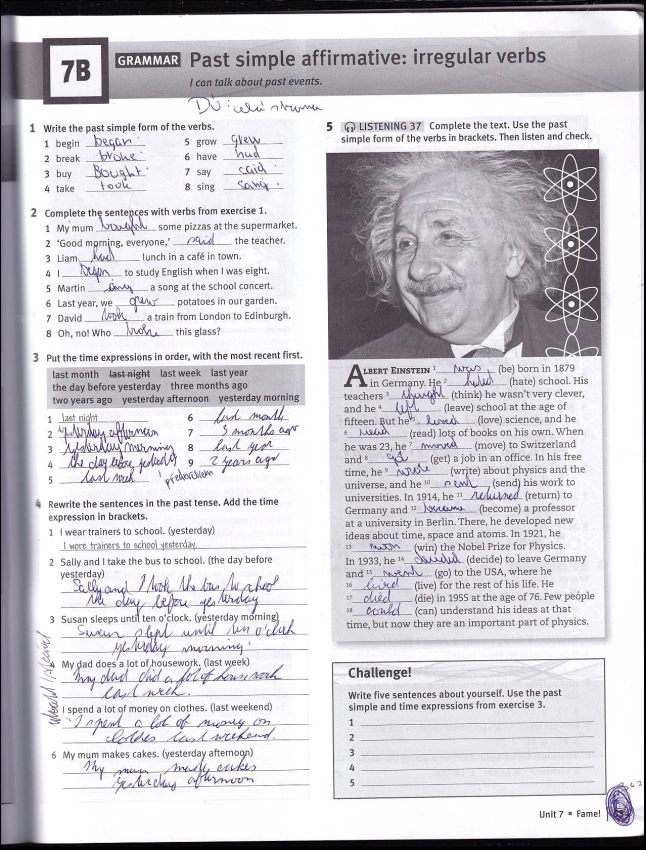 7B
GRAMMAR Past simple affirmative: irregular verbs
I can talk about past events.
DÚ: celá strana
1 Write the past simple form of the verbs.
1 begin began
2 break broke
3 buy Bought
4 take took
5 grow grew
6 have had
7 say said
8 sing sang
2 Complete the sentences with verbs from exercise 1.
1 My mum bought some pizzas at the supermarket.
2 'Good morning, everyone,' said the teacher.
3 Liam had lunch in a café in town.
4 I began to study English when I was eight.
5 Martin sang a song at the school concert.
6 Last year, we grew potatoes in our garden.
7 David took a train from London to Edinburgh.
8 Oh, no! Who broke this glass?
3 Put the time expressions in order, with the most recent first.
last month last night last week last year
the day before yesterday three months ago
two years ago yesterday afternoon yesterday morning
1 last night
2 yesterday afternoon
3 yesterday morning
4 the day before yesterday
5 last week
6 last month
7 3 months ago
8 last year
9 2 years ago
4 Rewrite the sentences in the past tense. Add the time
expression in brackets.
1 I wear trainers to school. (yesterday)
I wore trainers to school yesterday.
2 Sally and I take the bus to school. (the day before
yesterday)
Sally and I took the bus to school
the day before yesterday
3 Susan sleeps until ten o'clock. (yesterday morning)
Susan slept until ten o'clock
yesterday morning.
My dad does a lot of housework. (last week)
My dad did a lot of housework
last week.
I spend a lot of money on clothes. (last weekend)
I spent a lot of money on
clothes last weekend.
6 My mum makes cakes. (yesterday afternoon)
My mum made cakes
yesterday afternoon
5 LISTENING 37 Complete the text. Use the past
simple form of the verbs in brackets. Then listen and check.
ALBERT EINSTEIN 1 was (be) born in 1879
in Germany. He 2 hated (hate) school. His
teachers 3 thought (think) he wasn't very clever,
and he 4 left (leave) school at the age of
fifteen. But he 5 loved (love) science, and he
6 read (read) lots of books on his own. When
he was 23, he 7 moved (move) to Switzerland
and 8 got (get) a job in an office. In his free
time, he 9 wrote (write) about physics and the
universe, and he 10 sent (send) his work to
universities. In 1914, he 11 returned (return) to
Germany and 12 became (become) a professor
at a university in Berlin. There, he developed new
ideas about time, space and atoms. In 1921, he
13 won (win) the Nobel Prize for Physics.
In 1933, he 14 decided (decide) to leave Germany
and 15 went (go) to the USA, where he
16 lived (live) for the rest of his life. He
17 died (die) in 1955 at the age of 76. Few people
18 could (can) understand his ideas at that
time, but now they are an important part of physics.
Challenge!
Write five sentences about yourself. Use the past
simple and time expressions from exercise 3.
1
2
3
4
5
Unit 7 ▪ Fame!